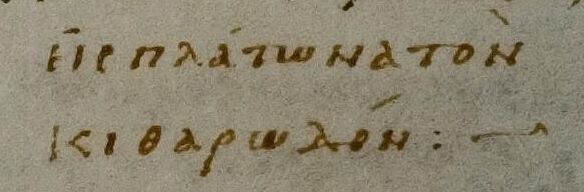 Εἰς πλάτωνα τὸν
κιθαρωδόν :~